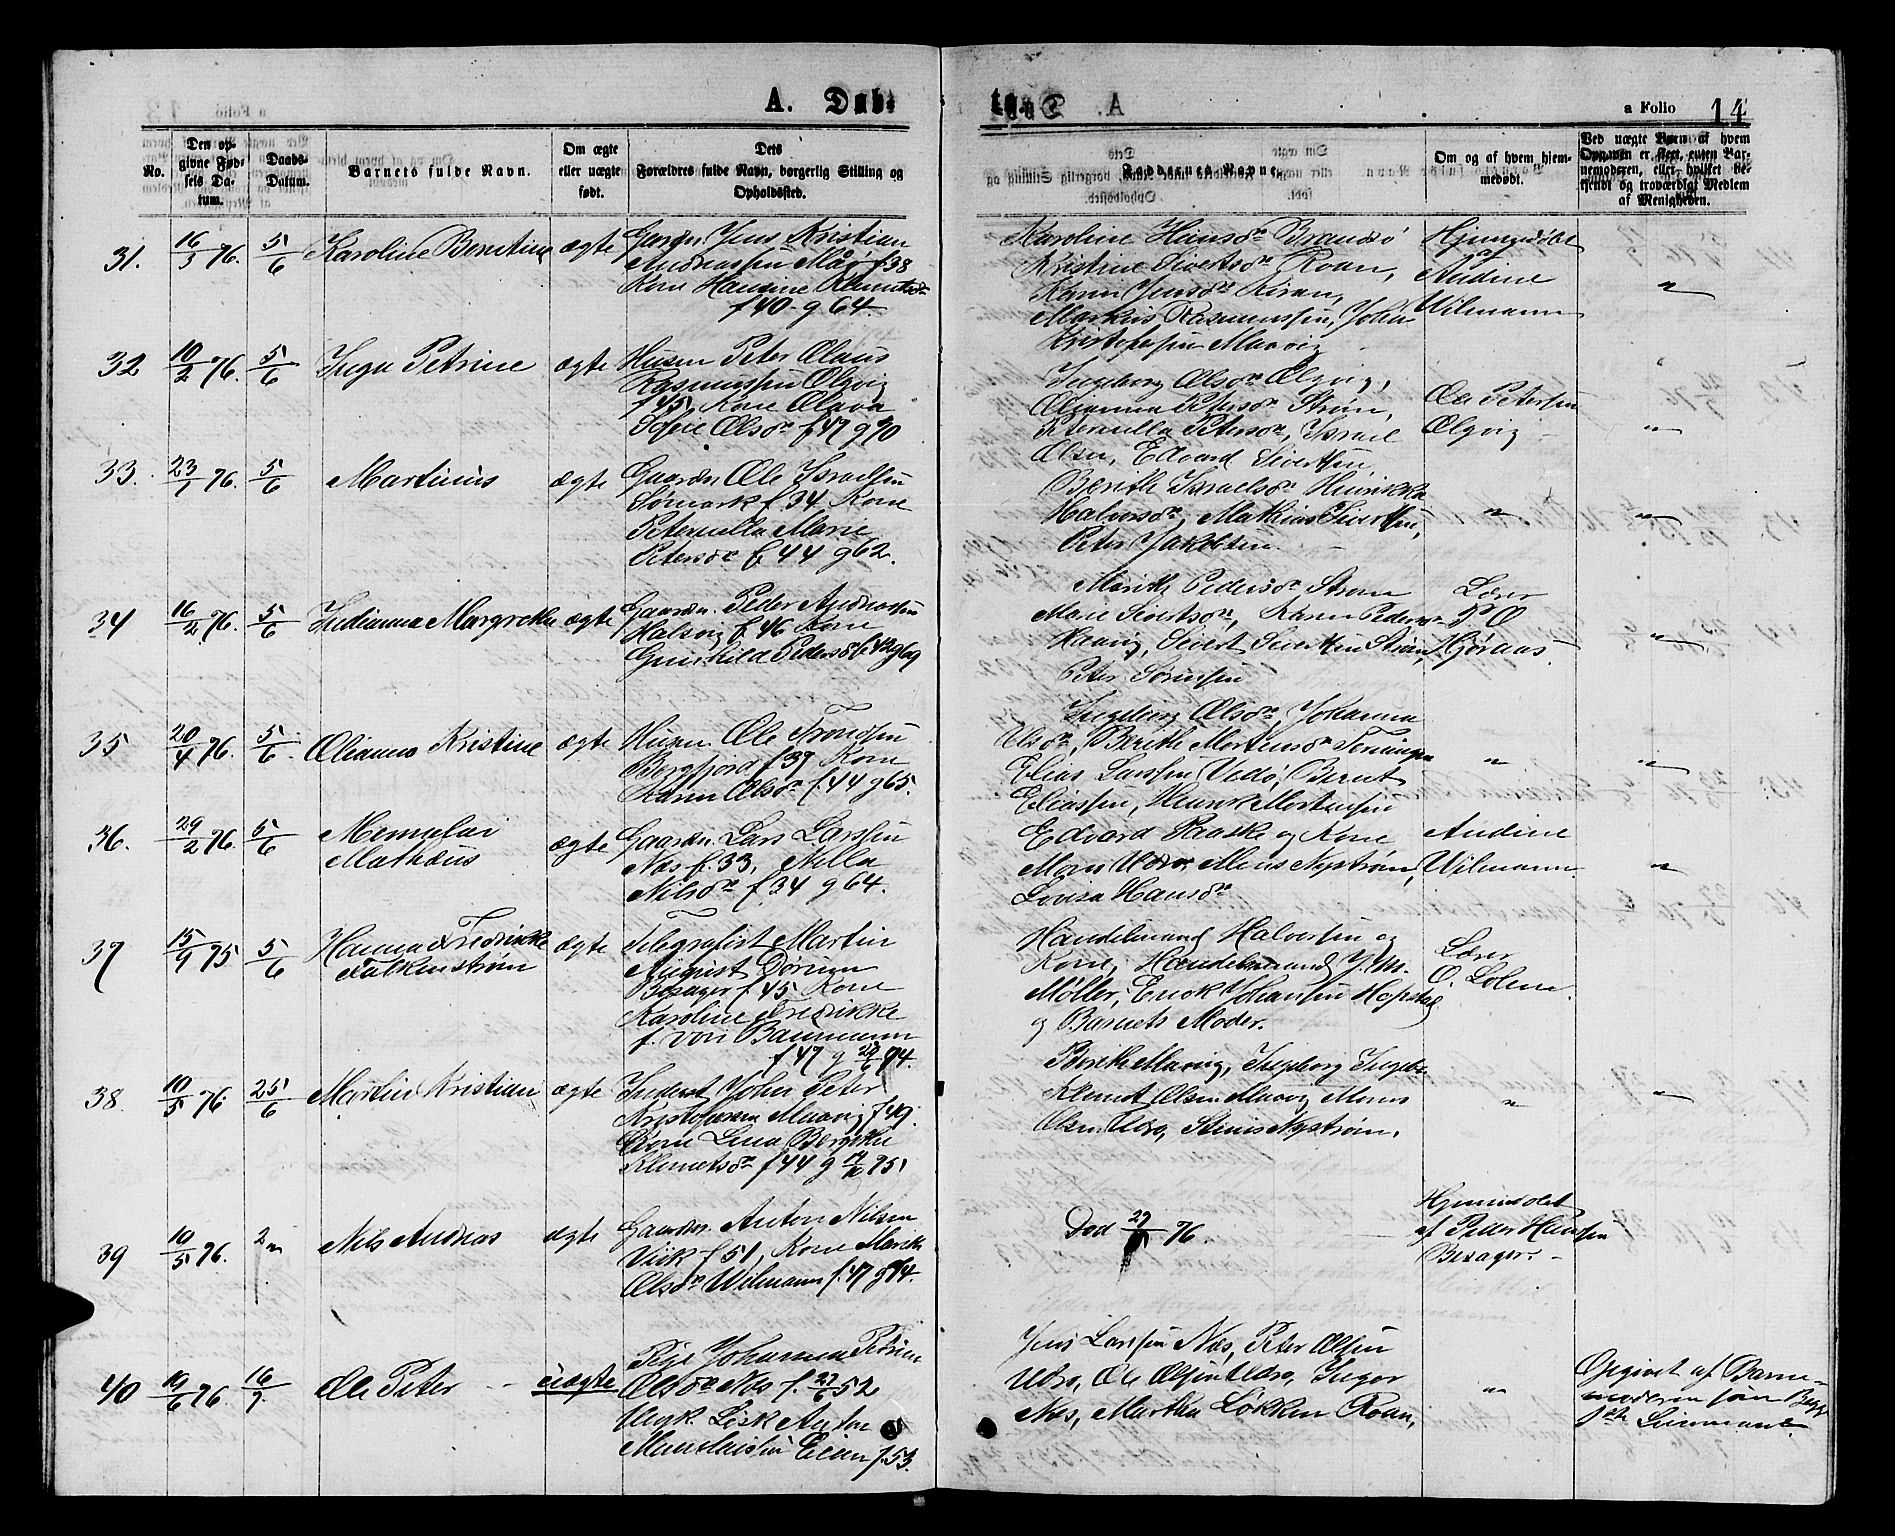 A. Dåb.
a Folio 14
No.
Den op-
givne Fød-
sels Da-
tum.
Daabs-
Datum.
Barnets fulde Navn.
Om ægte
eller uægte
født.
Dets
Forældres fulde Navn, borgerlig Stilling og
Opholdssted.
Faddernes Navne.
Om og af hvem hjem-
medøbt.
Ved uægte Børn af hvem
Opgaven er skeet, enten Bar-
nemoderen, eller hvilket be-
kjendt og troværdigt Medlem
af Menigheden.
31. 16/3 76. 5/6 Karoline Berntine ægte
Gaardm. Jens Kristian
Andreassen Måø f. 38
Kone Hansine Klemetsdr
f 40 g 64.
Karoline Hansdr Brandsø
Kristine Sivertsdr Roan,
Karen Jensdr Kiran,
Markus Rasmussen, John
Kristofersen Maavig
Hjemmedøbt
af
Andine
Wilmann
"
32 10/2 76. 5/6 Inga Petrine ægte
Husm Peter Olaus
Rasmussen Olgvig
f 45, Kone Olava
Olsdr f 47 g 70
Ingeborg Olsdr Olgvig,
Olianna Strøm,
Peternilla Petersdr, Israel
Olsen, Edvard Sivertsen,
Ole Petersen
Olgvig
"
33. 23/1 76. 5/6 Martinus ægte
Gaardm Ole Israelsen
Sørmark f. 34 Kone
Peternilla Marie
Petersdr f. 44 g 62.
Berith Israelsdr Henrikka
Halversdr, Mathias Sivertsen,
Peter Jakobsen.
"
"
34 16/2 76. 5/6 Indianna Margrethe ægte
Gaardm. Peder Andreassen
Halsvig f. 46 Kone
Gunhild Pedersdr f. 42 g 69
Marith Pedersdr Strøm
Marie Sivertsdr, Karen Pedersdr
Haavig, Sivert Sivertsen Strøm,
Peter Sørensen
Lærer
P. O
Hjøraas
"
35 20/4 76. 5/6. Olianna Kristine ægte
Husm. Ole Trondsen
Bergfjord f 37 Kone
Karen Olsdr f. 44 g 65.
Ingeborg Olsdr, Johanna
Olsdr, Berith Mortensdr Terningen
Elias Larssen Vedø, Bernt
Eliassen, Henrik Mortensen
"
"
36. 29/2 76. 5/6
Mathæus
ægte
Gaardm. Lars Larssen
Næs f. 33, Nilla
Nilsdr f. 34 g 64.
Edvard Paaske og Kone
Mons Udro, Mons Nystrøm,
Lovisa Hansdr
Andine
Wilmann.
"
37 15/9 75 5/6 Hanna Fredrikke
Falkenstrøm
ægte
Telegrafist Martin
August Dørum
Besager f. 45 Kone
Karoline Fredrikke
f. von Baumann
f 47 g 29/6 74.
Handelsmand Halversen og
Kone, Handelsmand J. M.
Møller, Erick Johansen Hopstad
og Barnets Moder.
Lærer
O. Lolene.
38. 10/5 76. 25/6 Martin Kristian ægte
Inderst John Peter
Kristofersen Maavig f 49.
Kone Lina Bergithe
Klemetsdr f 44 g 75
Berith Maavig, Ingeborg
Klemet Olsen Maavig Mons
Olsen Udro, Stinis Nystrøm.
"
"
39 10/5 76. 2 Nils Andreas ægte
Gaardm. Anton Nilsen
Viik f 51, Kone Marith
Olsdr Wilmann f. 47 g 74.
Død 27/5 76.
Hjemmedøbt
af Peder Hansen
Besager.
40 19/6 76. 16/7. Ole Peter uægte
Pige Johanna Petrine
Olsdr Næs f. 27/6 52
Ungk. Løsk Anton
Eian f. 53.
Jens Larssen Næs, Peter Olsen
Udro, Ole Olsen Udro, Inger
Næs, Martha Løkken Roan,
"
Opgivet af Barne-
moderen som
1ste Leiermaal.